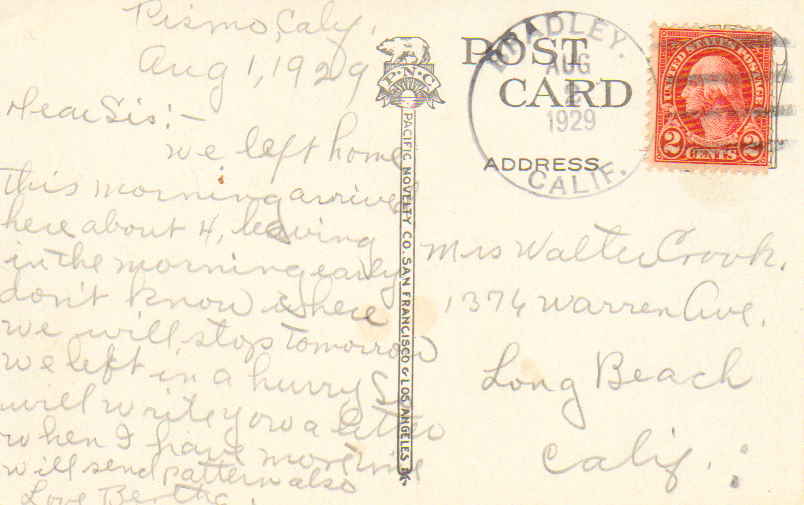 Pismo, Caly,
Aug 1, 1929
Dear Sis:-
We left home
this morning arrived
here about 4, leaving
in the morning early
don't know where
we will stop tomorrow
we left in a hurry so
will write you a letter
when I have more time
will send pattern also
Love Bertha.
P.N.C
PACIFIC NOVELTY CO. SAN FRANCISCO & LOS ANGELES
POST
CARD
ADDRESS
BRADLEY.
AUG
2
1929
CALIF.
UNITED STATES POSTAGE
2 CENTS 2
Mrs Walter Crook.
1374 Warren Ave.
Long Beach
Calif.